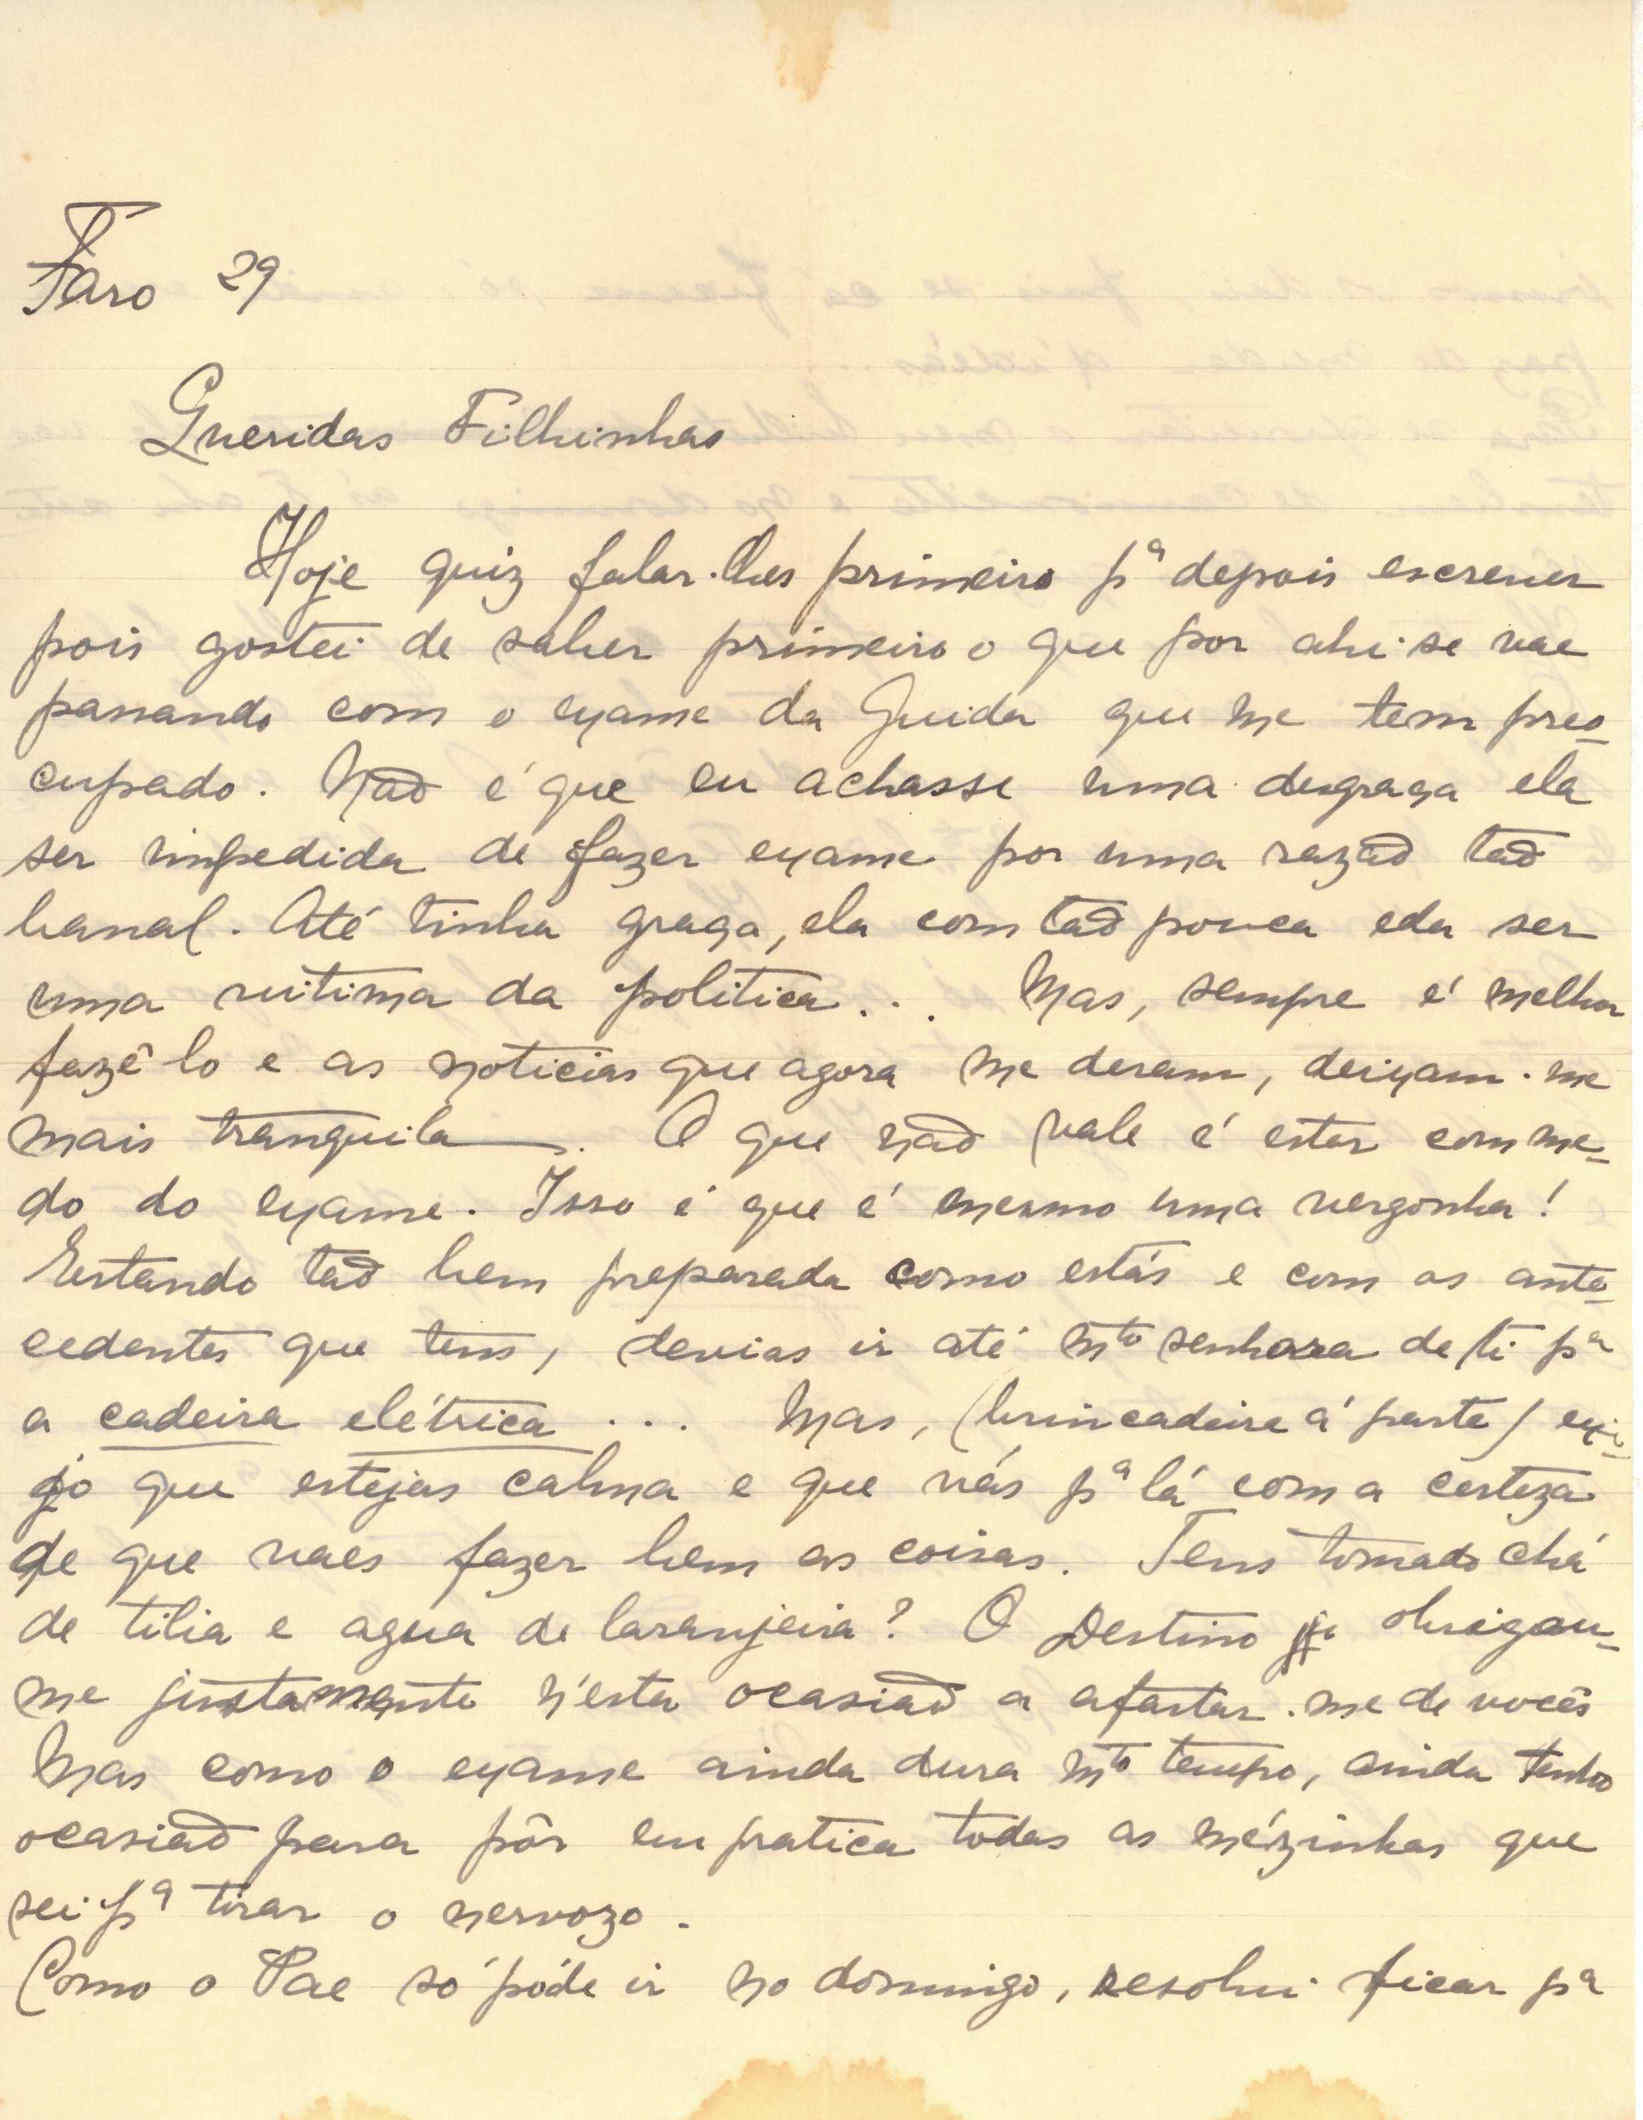 Faro 29
Queridas Filhinhas
Hoje quiz falar-lhes primeiro pª depois escrever
pois gostei de saber primeiro o que por ahi se vae
passando com o exame da Guida que me tem preo_
cupado. Não é que eu achasse uma desgraça ela
ser impedida de fazer exame por uma razão tão
banal. Até tinha graça, ela com tão pouca eda ser
uma vitima da politica... Mas, sempre é melhor
fazê lo e as noticias que agora me deram, deixam-me
mais tranquila. O que não vale é estar com me_
do do exame. Isso é que é mesmo uma vergonha!
Estando tão bem preparada como estás e com os ante_
cedentes que tens, devias ir até mto senhora de ti pª
a cadeira elétrica ... Mas, (brincadeira á parte) exi_
jo que estejas calma e que vás pª lá com a certeza
de que vaes fazer bem as coisas. Tens tomado chá
de tilia e agua de laranjeira? O Destino obrigou_
me justamente n'esta ocasião a afastar-me de vocês
Mas como o exame ainda dura mto tempo, ainda tenho
ocasião para pôr em pratica todas as mézinhas que
sei pª tirar o nervozo.
Como o Pae só póde ir no domingo, resolvi ficar pª